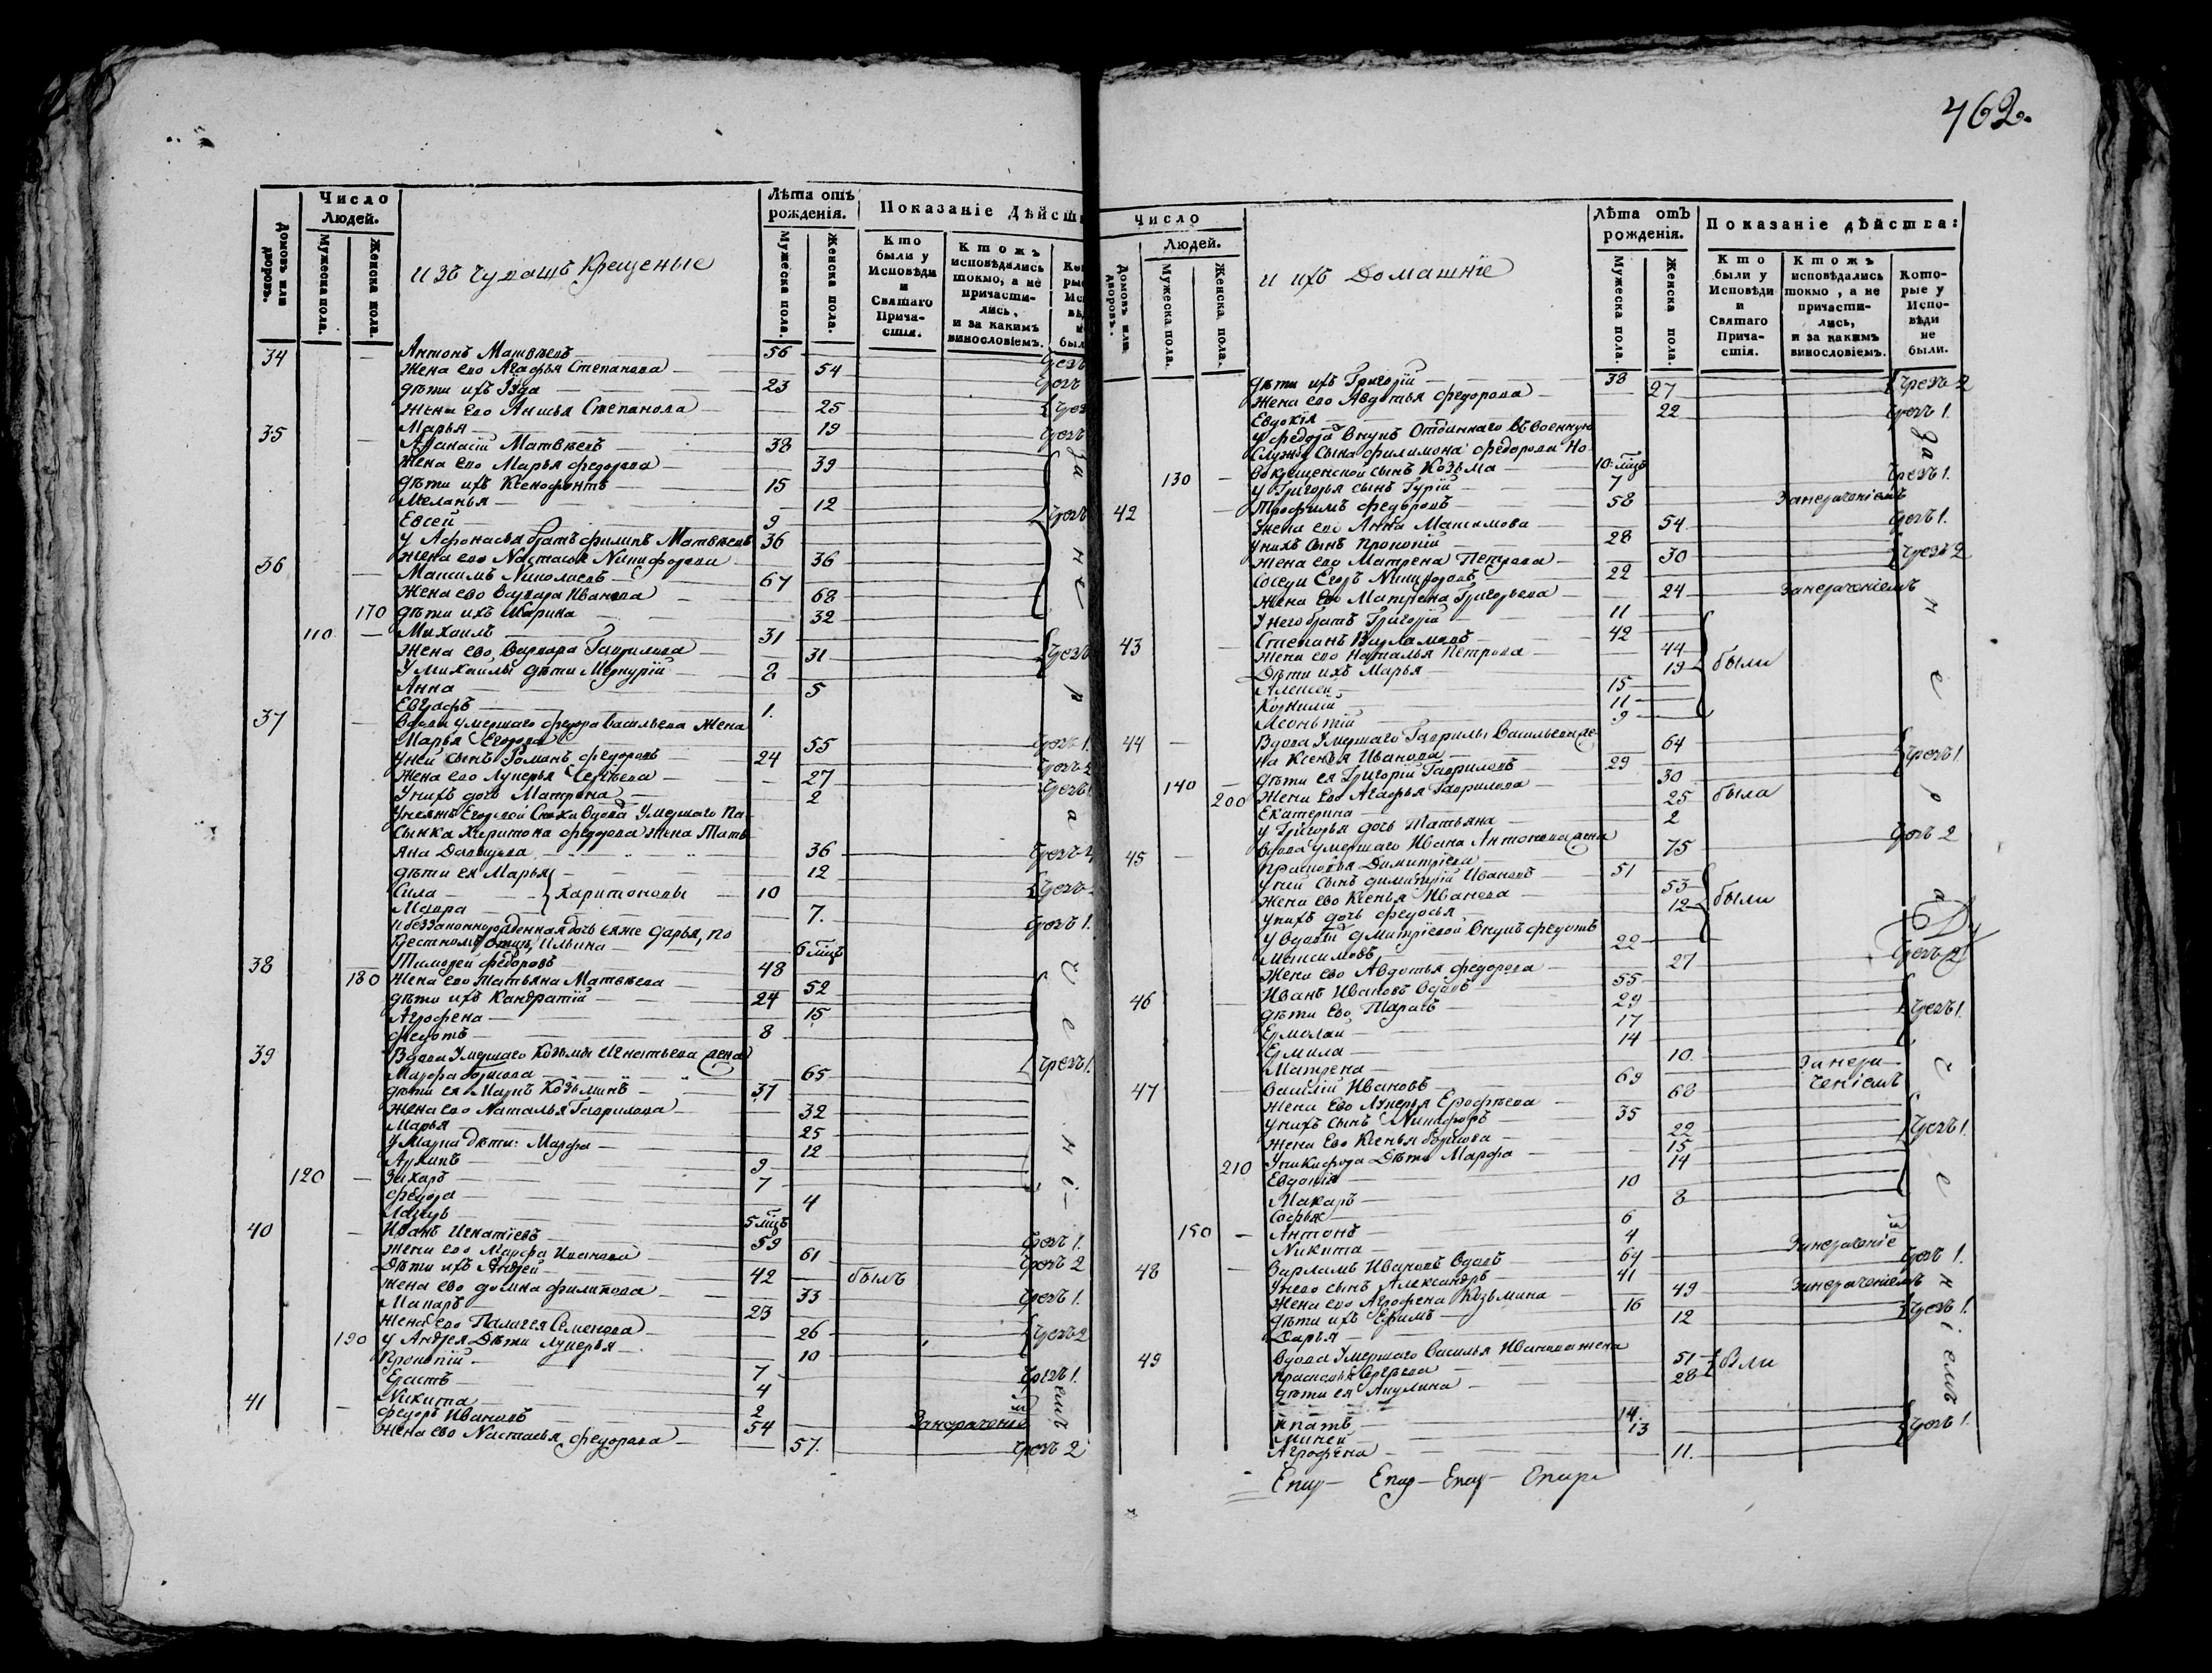 462.
Число Людей.
Лѣта отъ рожденія.
Показаніе Дѣйст
Домовъ или дворовъ.
Мужеска пола.
Женска пола.
изъ Чувашъ Крещеные
Мужеска пола.
Женска пола.
Кто были у Исповѣди и Святаго Причастія.
Ктожъ исповѣдались токмо, а не причастились, и за какимъ винословіемъ.
34 — Антонъ Матвѣевъ — 56
Жена его Агафья Степанова — 54
дѣти ихъ Іуда — 23
Жена его Анисья Степанова — 25
Марья — 19
35 — Афанасій Матвѣевъ 38
Жена его Марья Федорова — 39
дѣти ихъ Ксенофонтъ — 15
Меланья — 12
Евсей — 9
у Афонасья братъ Филипъ Матвѣевъ 36
Жена его Настасья Никифорова 36
36 — Максимъ Николаевъ — 67
Жена его Варвара Иванова — 68
170 дѣти ихъ Марина — 32
110 — Михаилъ — 31
Жена его Варвара Гаврилова — 31
У Михайлы дѣти Меркурій — 2
Анна — 5
Евграфъ — 1.
37 — Вдова умершаго Федора Васильева Жена
Марья Егорова — 55 чрезъ 1.
у ней сынъ Романъ Федоровъ 24
Жена его Лукерья Сергѣева — 27
У нихъ дочь Матрена — 2
Умершаго Па
сынка Харитона Федорова Жена Тать
яна 36
дѣти ея Марья 12
Сила — Харитоновы — 10
Мавра — 7.
и беззаконнорожденная дочь ея же Дарья, по
Ильина — 6 мцъ
38 Тимофей Федоровъ — 48
180 Жена его Татьяна Матвѣева — 52
дѣти ихъ Кандратій — 24
Агрофена — 15
Федотъ — 8
39 Вдова Умершаго Козьмы Игнатьева жена
Марфа Борисова — 65 чрезъ 1.
дѣти ея Маркъ Козьминъ — 37
Жена его Наталья Гаврилова — 32
Марья — 25
у Марка дѣти: Марфа — 12
Архипъ — 9
120 — Захаръ — 7
Федора — 4
5 мцъ
40 — Иванъ Игнатіевъ — 59 чрезъ 1.
Жена его Марфа Иванова 61 чрезъ 2
Дѣти ихъ Андрей — 42 — былъ
Жена его Домна Филипова — 33 чрезъ 1.
Макаръ — 23
Жена его Палагея Семенова — 26 чрезъ 2
190 у Андрея Дѣти Лукерья — 10
Прокопій — 7
Ерастъ — 4 чрезъ 1.
Никита 2
41 — Федоръ Ивановъ — 54 Занерачені
Жена его Настасья Федорова — 57. чрезъ 2
За не р а ч е н і емъ
Число Людей.
Лѣта отъ рожденія.
Показаніе дѣйства:
Домовъ или дворовъ.
Мужеска пола.
Женска пола.
и ихъ Домашніе
Мужеска пола.
Женска пола.
Кто были у Исповѣди и Святаго Причастія.
Ктожъ исповѣдались токмо, а не причастились, и за какимъ винословіемъ.
Которые у Исповѣди не были.
дѣти ихъ Григорій — 38 чрезъ 2
Жена его Авдотья Федорова — 27
Евдокія — 22 чрезъ 1.
у Федора внукъ Отданнаго въ военную
службу сына Филимона Федорова Но
130 — вокрещенской сынъ Козьма — 10 мцъ
у Григорья сынъ Гурій — 7 чрезъ 1.
42 — Трофимъ Федоровъ 58 Занераченіемъ
Жена его Анна Максимова — 54 чрезъ 1.
у нихъ сынъ Прокопій — 28
Жена его Матрена Петрова — 30 чрезъ 2
Соседи Егоръ Никифоровъ — 22
Жена его Матрена Григорьева — 24 Занераченіемъ
У него братъ Григорій — 11
43 — Степанъ Варламовъ — 42
Жена его Наталья Петрова — 44
Дѣти ихъ Марья — 19 были
Алексей — 15
Корнилій — 11
Леонтій — 9
44 — Вдова Умершаго Гаврилы Васильева же
на Ксенья Иванова — 64
дѣти ея Григорій Гавриловъ — 29 чрезъ 1
140 Жена его Агафья Гаврилова — 30
200 Екатерина — 25 была
у Григорья дочь Татьяна — 2
45 — Вдова умершаго Ивана Антонова жена
Прасковья Димитріева — 75 чрезъ 2
у ней сынъ Димитрій Ивановъ — 51
Жена его Ксенья Иванова — 53 были
у нихъ дочь Федосья — 12
у вдовы Дмитріевой внукъ Федотъ
Максимовъ 22
Жена его Авдотья Федорова — 27 чрезъ 2
46 Иванъ Ивановъ вдовъ — 55
дѣти его Тарасъ — 29 чрезъ 1.
Ермолай — 17
Ермила — 14
Матрена — 10
47 — Василій Ивановъ — 69 Занера
Жена его Лукерья Ерофѣева — 68 ченіемъ
у нихъ сынъ Никифоръ — 35
Жена его Ксенья Борисова — 22 чрезъ 1.
У Никифора Дѣти Марфа — 15
210 Евдокія — 14
Макаръ — 10
Софья — 8
150 — Антонъ — 6
Никита — 4
48 — Варламъ Ивановъ вдовъ — 64 Занерачені
У него сынъ Александръ — 41 чрезъ 1.
Жена его Агрофена Козьмина — 49 Занераченіемъ
дѣти ихъ Ефимъ — 16 чрезъ 1.
Дарья — 12
49 Вдова Умершаго Василья Иванова жена
Прасковья Сергѣева — 51
дѣти ея Акулина — 28
14
Миней 13 чрезъ 1.
Агрофена — 11.
За н е р а ч е н і емъ